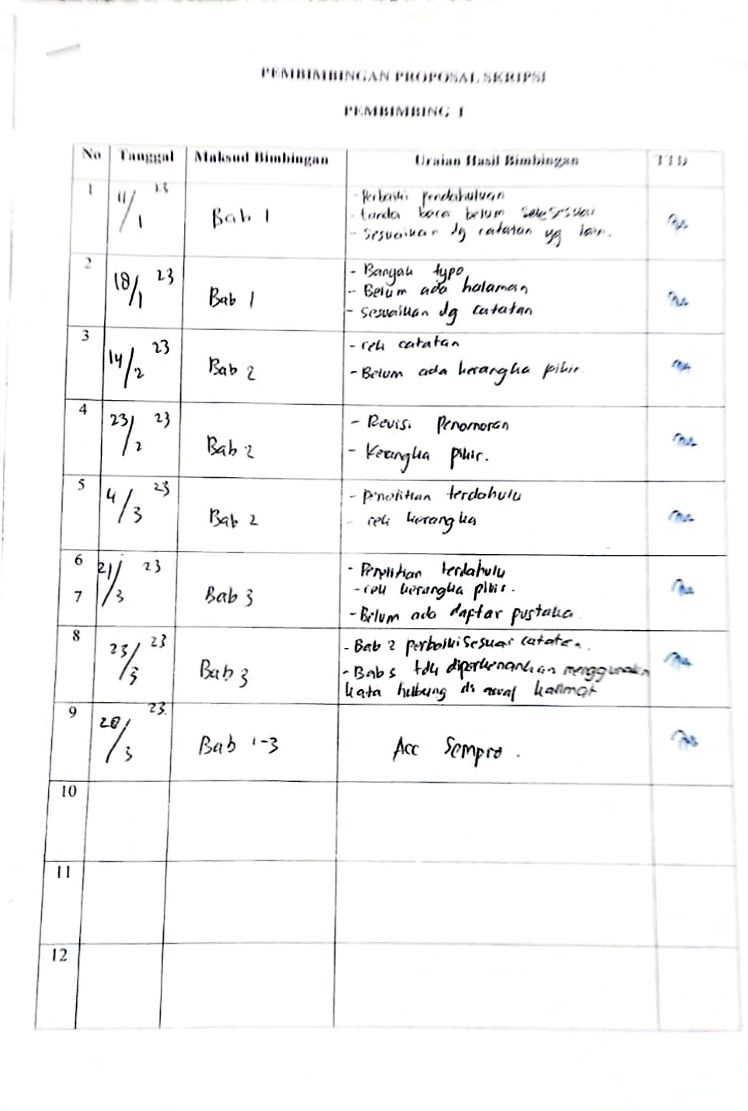 PEMBIMBINGAN PROPOSAL SKRIPSI
PEMBIMBING I
No Tanggal Maksud Bimbingan Uraian Hasil Bimbingan TTD
1 11/1 23 Bab 1 - Perbaiki pendahuluan
- tanda baca belum sesuai
- Sesuaikan dg catatan yg lain.
2 18/1 23 Bab 1 - Banyak typo
- Belum ada halaman
- Sesuaikan dg catatan
3 14/2 23 Bab 2 - cek catatan
- Belum ada kerangka pikir
4 23/2 23 Bab 2 - Revisi Penomoran
- Kerangka pikir.
5 4/3 23 Bab 2 - Penelitian terdahulu
- cek kerangka
6 21/3 23 Bab 3 - Penelitian terdahulu
7 - cek kerangka pikir.
- Belum ada daftar pustaka
8 23/3 23 Bab 3 - Bab 2 perbaiki sesuai catatan.
- Bab tdk diperkenankan menggunakan
kata hubung di awal kalimat
9 28/3 23 Bab 1-3 Acc Sempro.
10
11
12